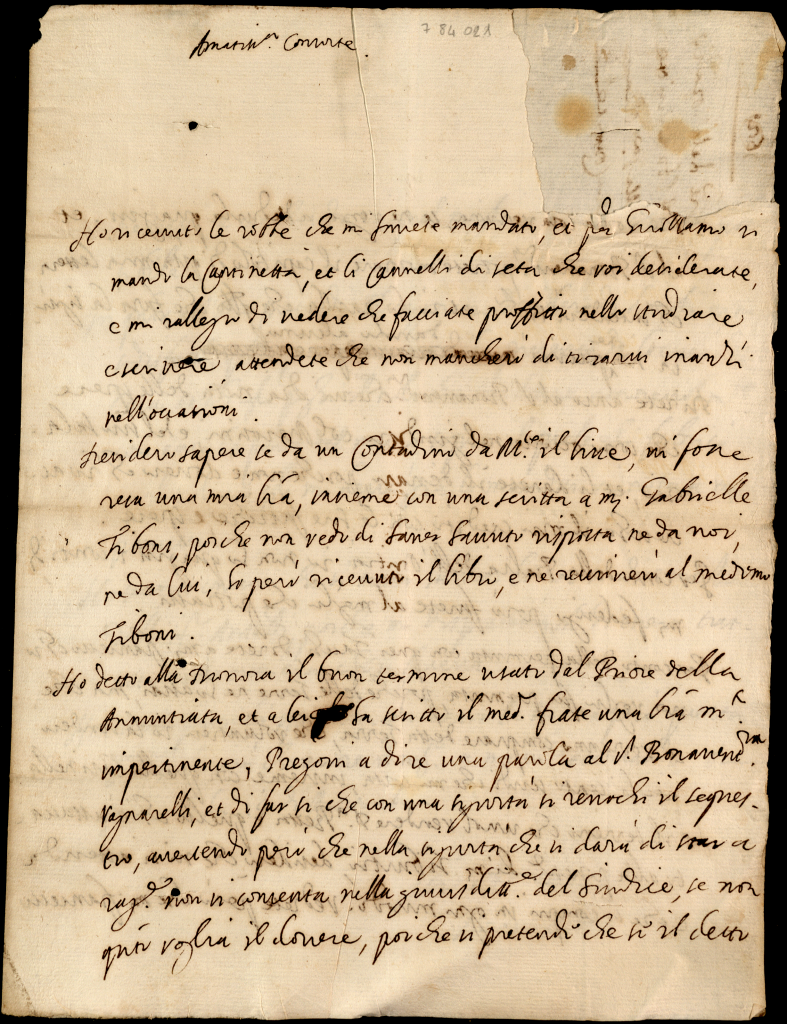 7 84 021
Amatiss.a Consorte.
Ho ricevuto le robbe che mi havete mandato, et per Guilliamo vi
mando la Cartinetta, et li Cannelli di seta che voi desiderate,
e mi rallegro di vedere che facciate profitto nello studiare
e scrivere attendete che non mancherò di tirarvi inanzi
nell'occasioni.
Desidero sapere se da un Contadino da M.te il fosse
resa una mia lrã, insieme con una scritta a mj. Gabrielle
Tiboni, perche non vedo di haver havuto risposta ne da voi,
ne da lui, ho però ricevuto il libro, e ne al medemo
Tiboni.
Ho detto alla Leonora il buon termine usato dal Priore della
Annuntiata, et a lei ha scritto il med.o frate una lrã m.to
impertinente, Pregovi a dire una parola al s.r Bonavent.ra
Vagnarelli, et di far si che con una sigurtà si revochi il seques-
tro, avertendo però che nella sigurtà che si darà di star a
rag.e non si consenta nella giurisditt.e del Giudice, se non
q.to voglia il dovere, perche si pretende che se il detto